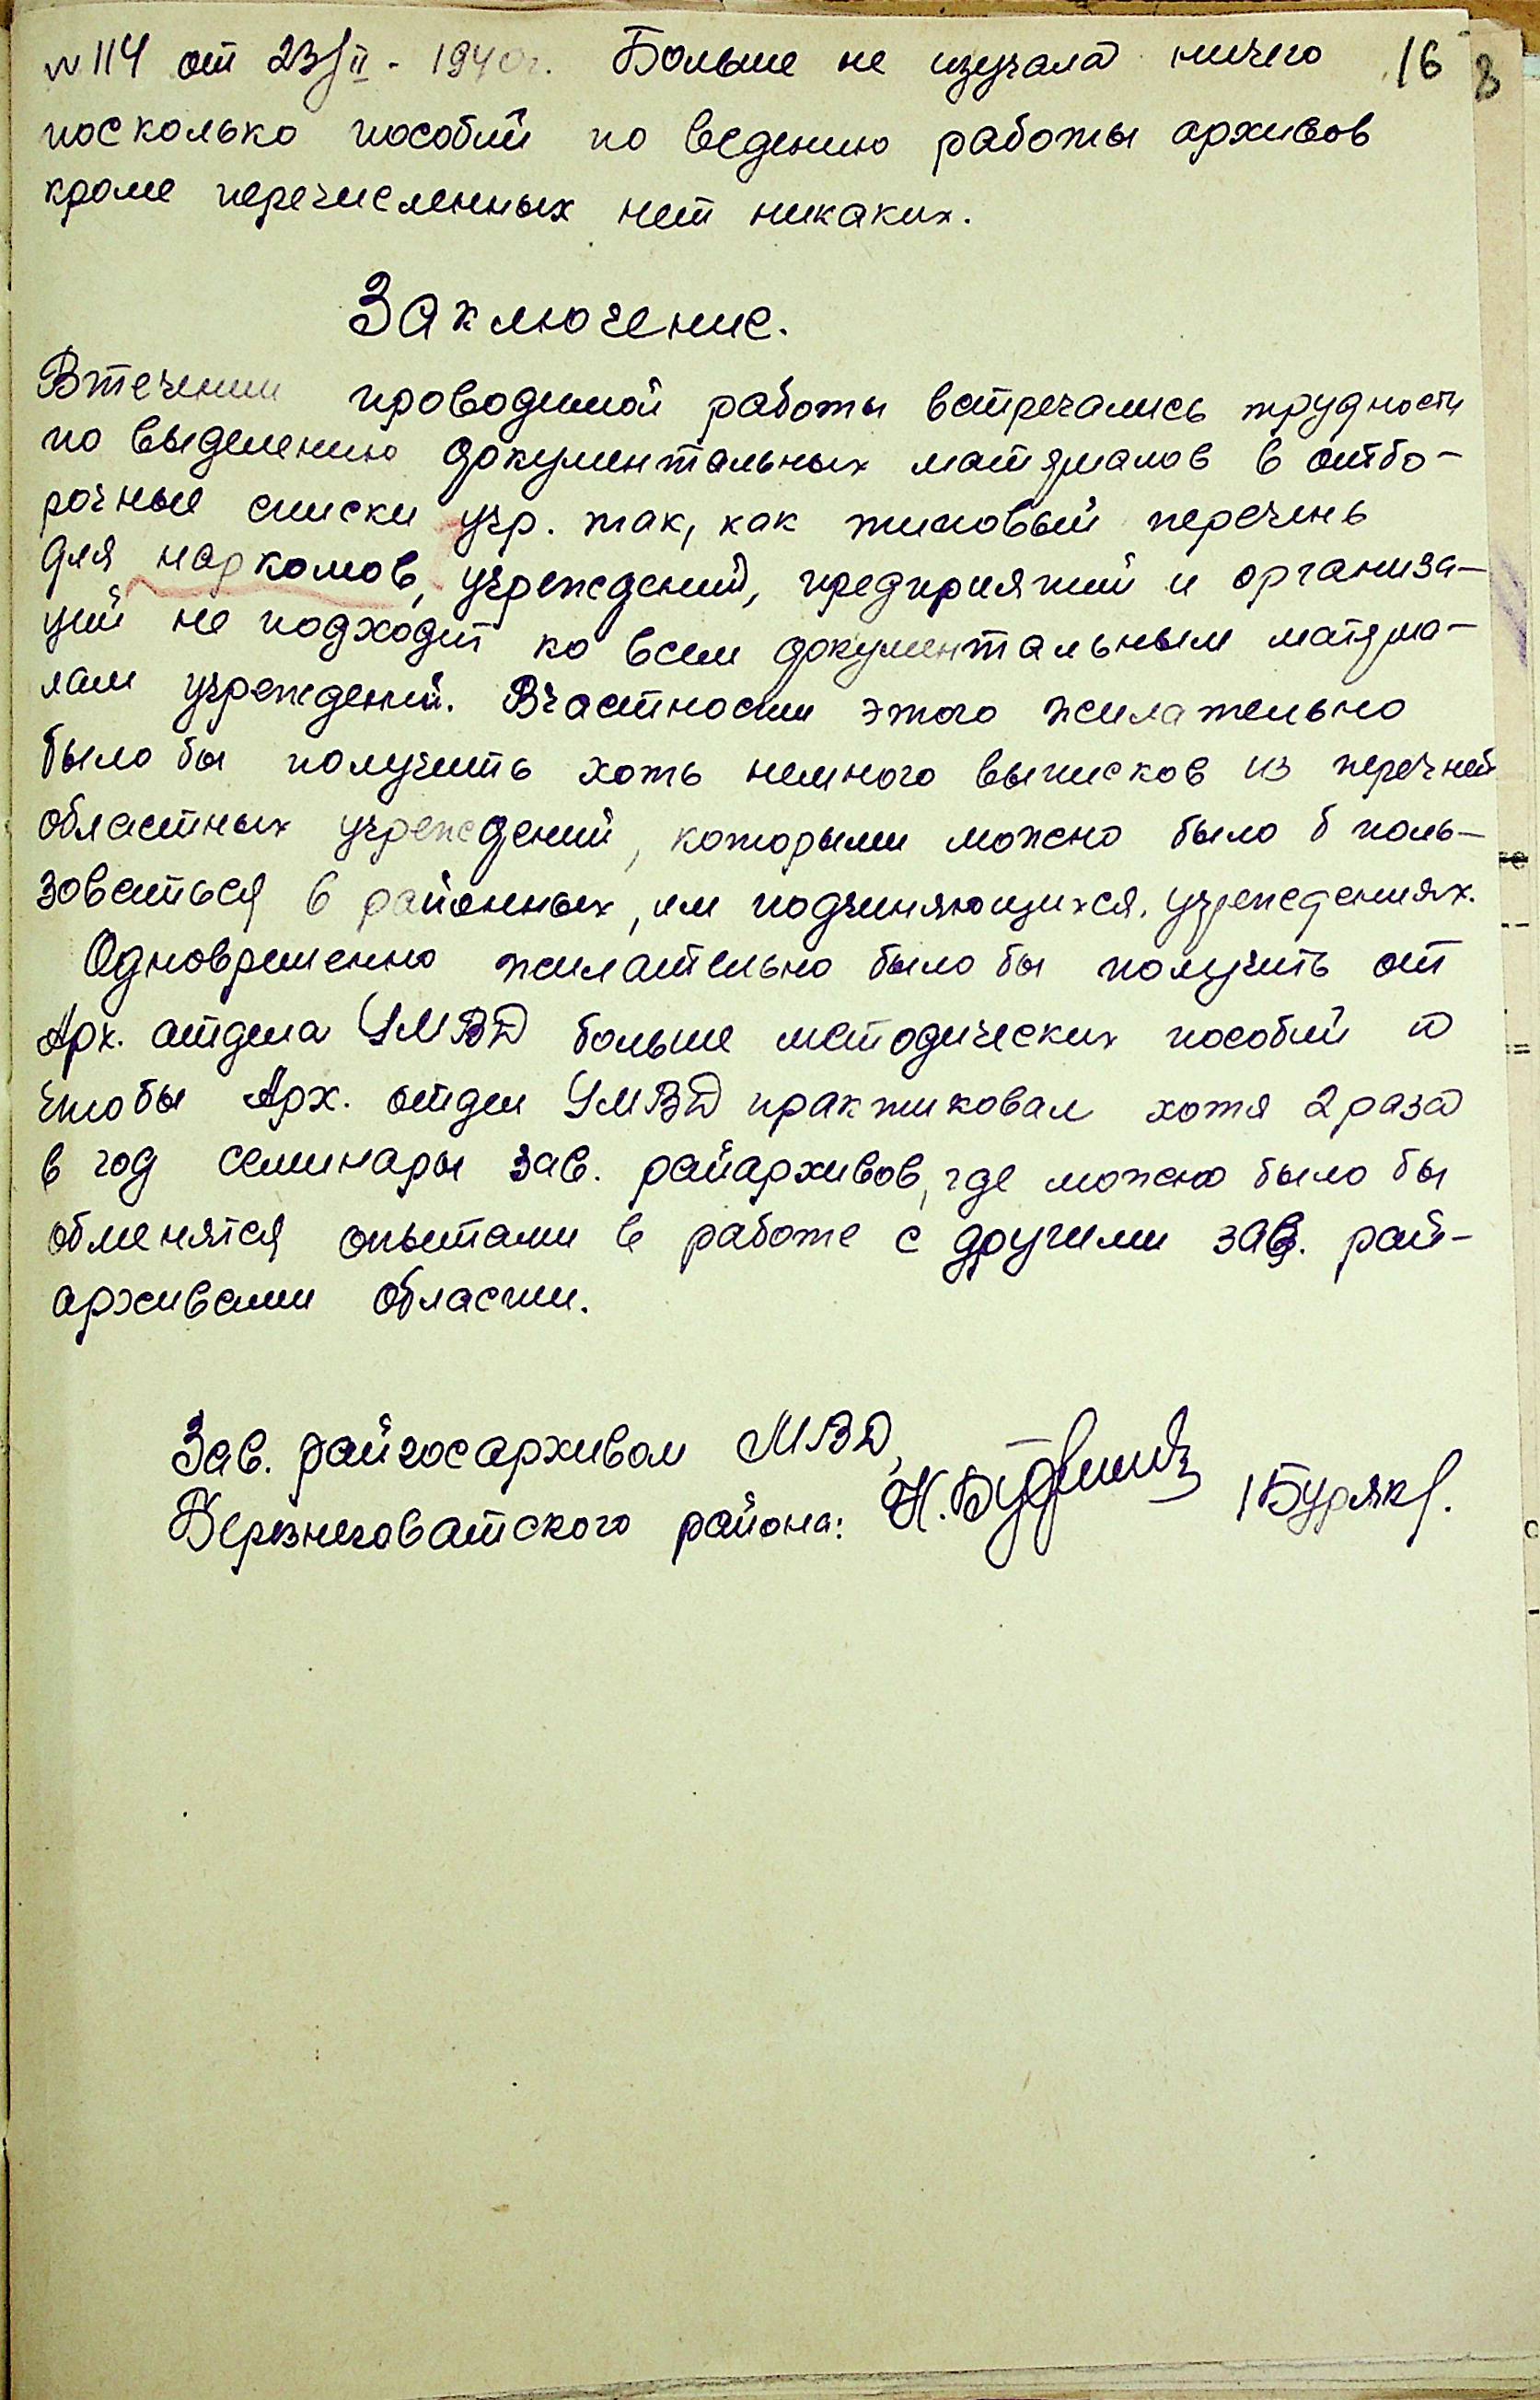 № 114 от 23/II - 1940г. Больше не изучала ничего 16 8
посколько пособий по ведению работы архивов
кроме перечисленных нет никаких.
Заключение.
Втечении проводимой работы встречались трудности
по выделению документальных матярмалов в отбо-
рочные списки учр. так, как типовый перечень
для наркомов, учреждений, предприятий и организа-
ций не подходит ко всем документальным матяриа-
лам учреждений. Вчастности этого жилательно
было бы получить хоть немного выписков из перечней
областных учреждений, которыми можно было б поль-
зоваться в районных, им подчиняющихся, учреждениях.
Одновременно жилательно было бы получить от
Арх. отдела УМВД больше методических пособий а
чтобы Арх. отдел УМВД практиковал хотя 2 раза
в год семинары зав. райархивов, где можно было бы
обменятся опытами в работе с другими зав. рай-
архивами области.
Зав. райгосархивом МВД,
Березнеговатского района: /Буряк/.